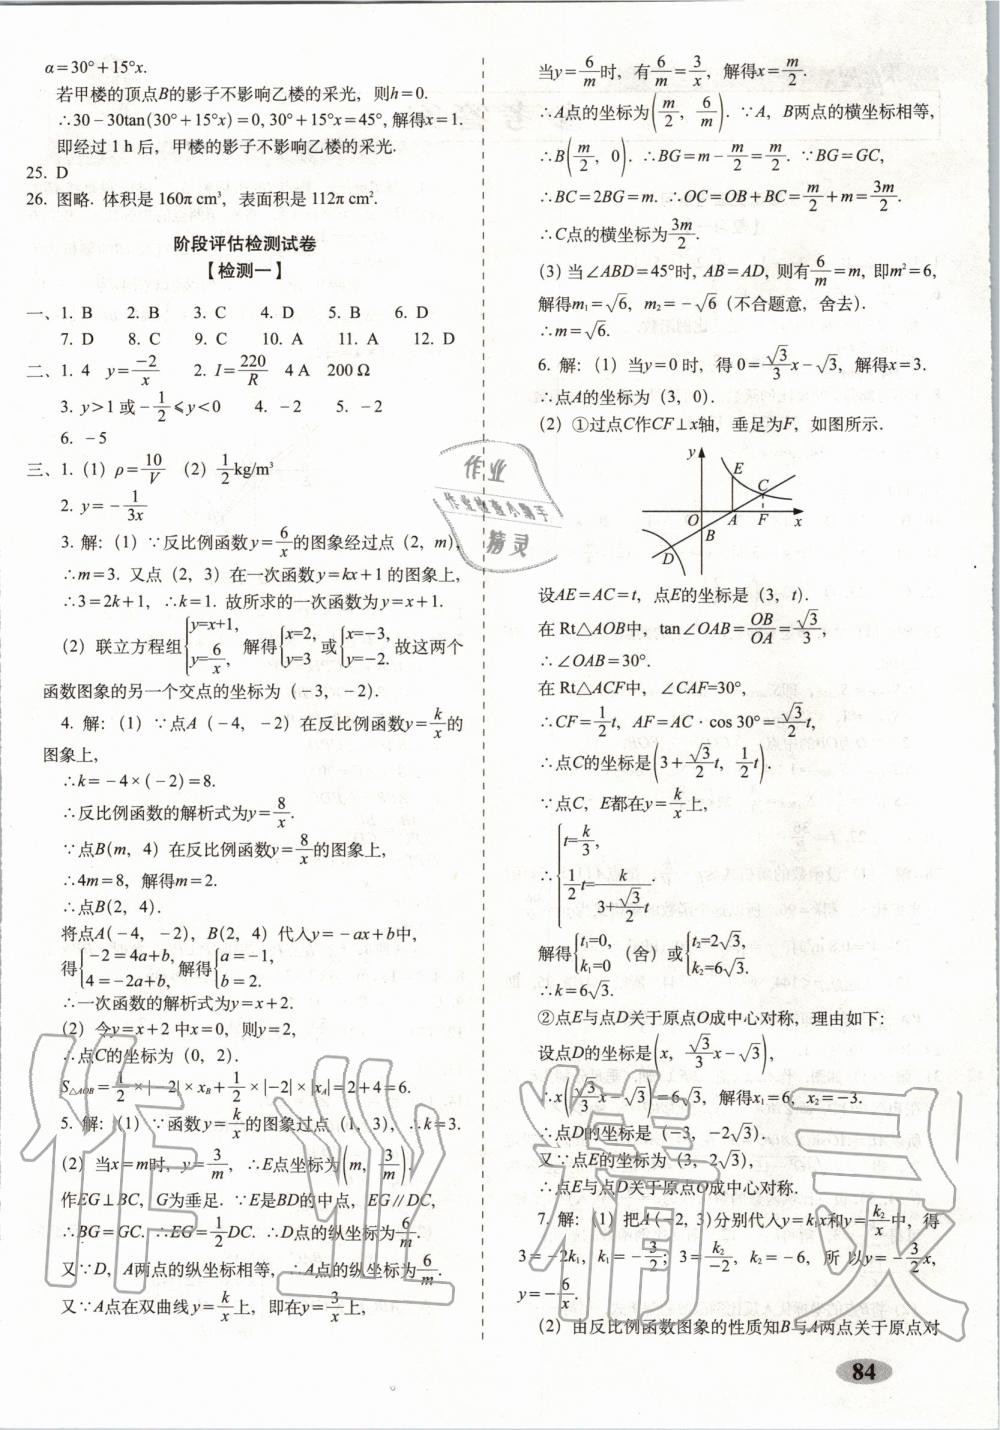 α=30°+15°x.
若甲楼的顶点B的影子不影响乙楼的采光，则h=0.
∴30-30tan(30°+15°x)=0, 30°+15°x=45°, 解得x=1.
即经过1 h后，甲楼的影子不影响乙楼的采光.
25. D
26. 图略. 体积是160π cm³，表面积是112π cm².
阶段评估检测试卷
【检测一】
一、1. B 2. B 3. C 4. D 5. B 6. D
7. D 8. C 9. C 10. A 11. A 12. D
二、1. 4 y=-2/x 2. I=220/R 4 A 200 Ω
3. y>1或-1/2≤y<0 4. -2 5. -2
6. -5
三、1.（1）ρ=10/V （2）1/2 kg/m³
2. y=-1/3x
3. 解：（1）∵反比例函数y=6/x的图象经过点（2，m），
∴m=3. 又点（2，3）在一次函数y=kx+1的图象上，
∴3=2k+1，∴k=1. 故所求的一次函数为y=x+1.
（2）联立方程组{y=x+1, y=6/x, 解得{x=2, y=3 或{x=-3, y=-2. 故这两个
函数图象的另一个交点的坐标为（-3，-2）.
4. 解：（1）∵点A（-4，-2）在反比例函数y=k/x的
图象上，
∴k=-4×(-2)=8.
∴反比例函数的解析式为y=8/x.
∵点B(m，4）在反比例函数y=8/x的图象上，
∴4m=8，解得m=2.
∴点B(2，4）.
将点A(-4，-2)，B(2，4）代入y=-ax+b中，
得{-2=4a+b, 4=-2a+b, 解得{a=-1, b=2.
∴一次函数的解析式为y=x+2.
（2）令y=x+2中x=0，则y=2，
∴点C的坐标为（0，2）.
S△AOB=1/2×|-2|×xB+1/2×|-2|×|xA|=2+4=6.
5. 解：（1）∵函数y=k/x的图象过点（1，3），∴k=3.
（2）当x=m时，y=3/m，∴E点坐标为(m，3/m).
作EG⊥BC，G为垂足. ∵E是BD的中点，EG∥DC，
∴BG=GC. ∴EG=1/2DC. ∴D点的纵坐标为6/m.
又∵D，A两点的纵坐标相等，∴A点的纵坐标为6/m.
又∵A点在双曲线y=k/x上，即在y=3/x上，
当y=6/m时，有6/m=3/x，解得x=m/2.
∴A点的坐标为(m/2，6/m). ∵A，B两点的横坐标相等，
∴B(m/2，0). ∴BG=m-m/2=m/2. ∵BG=GC，
∴BC=2BG=m. ∴OC=OB+BC=m/2+m=3m/2.
∴C点的横坐标为3m/2.
(3) 当∠ABD=45°时, AB=AD, 则有6/m=m, 即m²=6,
解得m₁=√6，m₂=-√6（不合题意，舍去）.
∴m=√6.
6. 解：（1）当y=0时，得0=√3/3x-√3，解得x=3.
∴点A的坐标为（3，0）.
（2）①过点C作CF⊥x轴，垂足为F，如图所示.
y
E
C
O A F x
B
D
设AE=AC=t，点E的坐标是（3，t）.
在Rt△AOB中，tan∠OAB=OB/OA=√3/3，
∴∠OAB=30°.
在Rt△ACF中，∠CAF=30°，
∴CF=1/2t，AF=AC·cos 30°=√3/2t，
∴点C的坐标是(3+√3/2t，1/2t).
∵点C，E都在y=k/x上，
∴{t=k/3, 1/2t=k/(3+√3/2t).
解得{t₁=0, k₁=0（舍）或{t₂=2√3, k₂=6√3.
∴k=6√3.
②点E与点D关于原点O成中心对称，理由如下：
设点D的坐标是(x，√3/3x-√3)，
∴x(√3/3x-√3)=6√3，解得x₁=6，x₂=-3.
∴点D的坐标是（-3，-2√3）.
又∵点E的坐标为（3，2√3），
∴点E与点D关于原点O成中心对称.
7. 解：（1）把A(-2，3)分别代入y=k₁x和y=k₂/x中，得
3=-2k₁，k₁=-3/2；3=k₂/-2，k₂=-6，所以y=-3/2x，
y=-6/x.
（2）由反比例函数图象的性质知B与A两点关于原点对
84
作业
作业检查小帮手
精灵
作业精灵